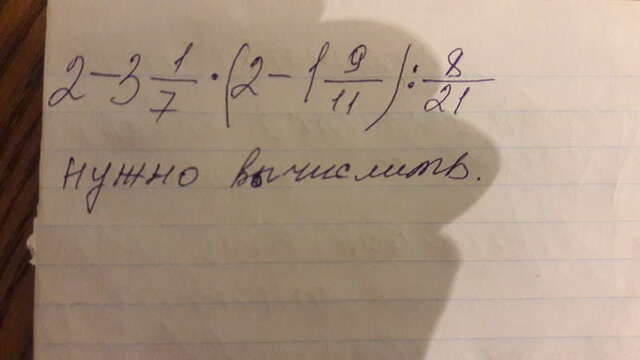 2 - 3 1/7 · (2 - 1 9/11) : 8/21
нужно вычислить.